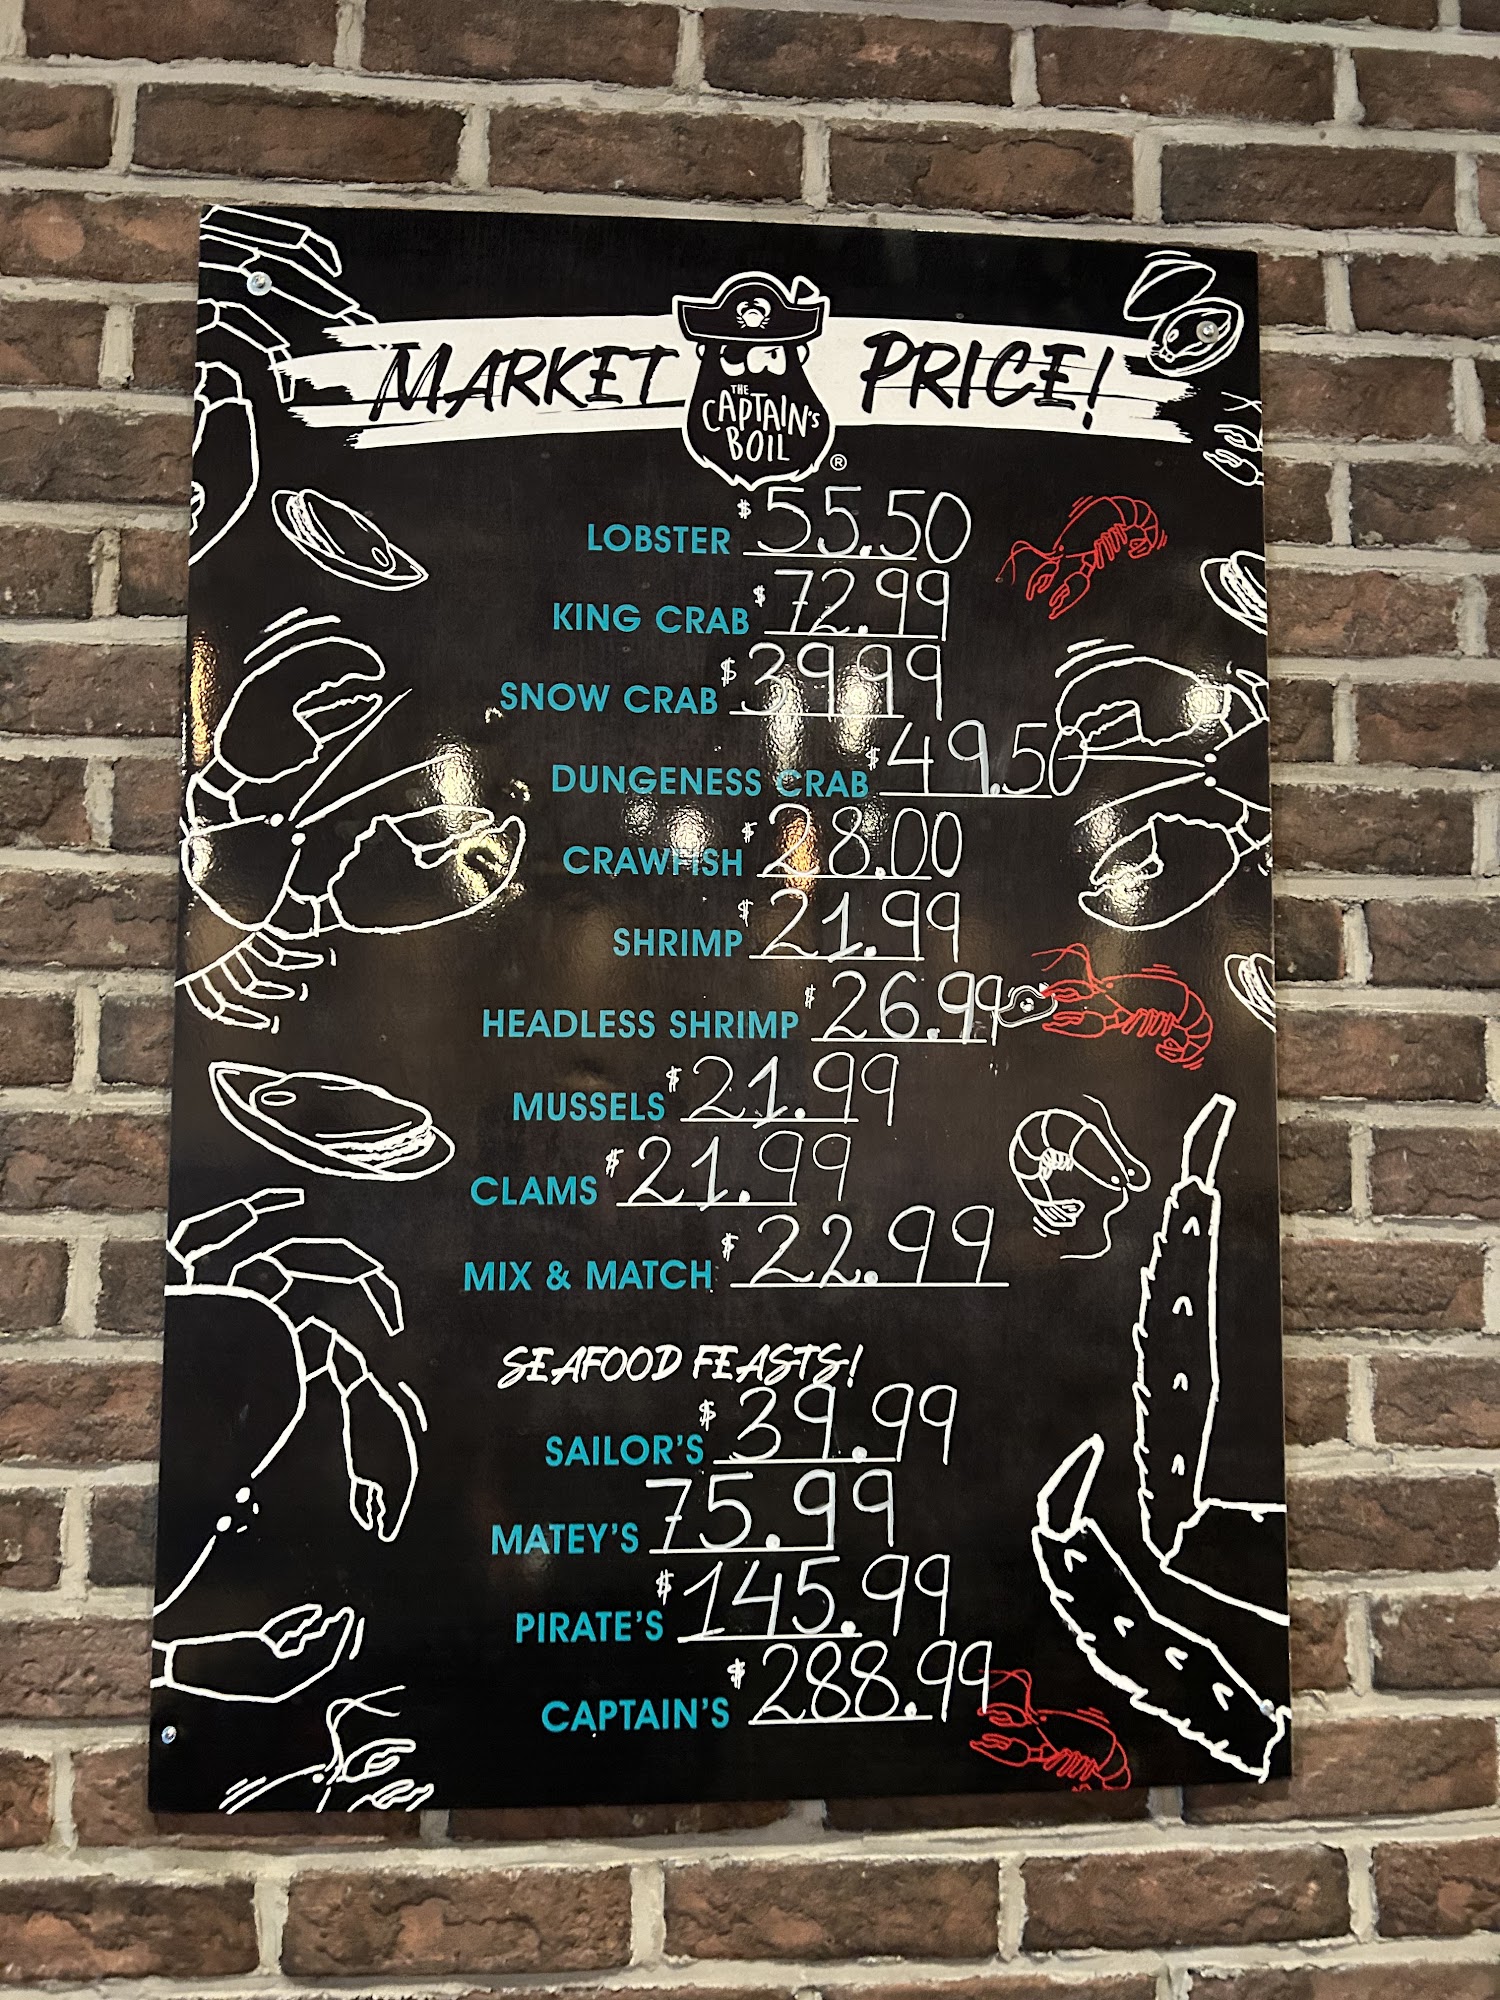 MARKET PRICE!
THE
CAPTAIN'S
BOIL
®
LOBSTER $55.50
KING CRAB $72.99
SNOW CRAB $39.99
DUNGENESS CRAB $49.50
CRAWFISH $28.00
SHRIMP $21.99
HEADLESS SHRIMP $26.99
MUSSELS $21.99
CLAMS $21.99
MIX & MATCH $22.99
SEAFOOD FEASTS!
SAILOR'S $39.99
MATEY'S 75.99
PIRATE'S $145.99
CAPTAIN'S $288.99